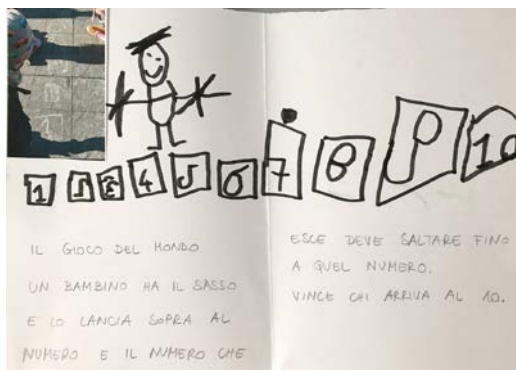 1 2 3 4 5 6 7 8 9 10
IL GIOCO DEL MONDO
UN BAMBINO HA IL SASSO
E LO LANCIA SOPRA AL
NUMERO E IL NUMERO CHE
ESCE DEVE SALTARE FINO
A QUEL NUMERO.
VINCE CHI ARRIVA AL 10.